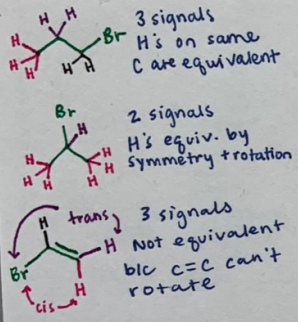 H H
Br
H
H H H H
3 signals
H's on same
C are equivalent
Br
H
H H
H H H H
2 signals
H's equiv. by
symmetry + rotation
trans
H
H
Br
H
cis
3 signals
Not equivalent
b/c C=C can't
rotate